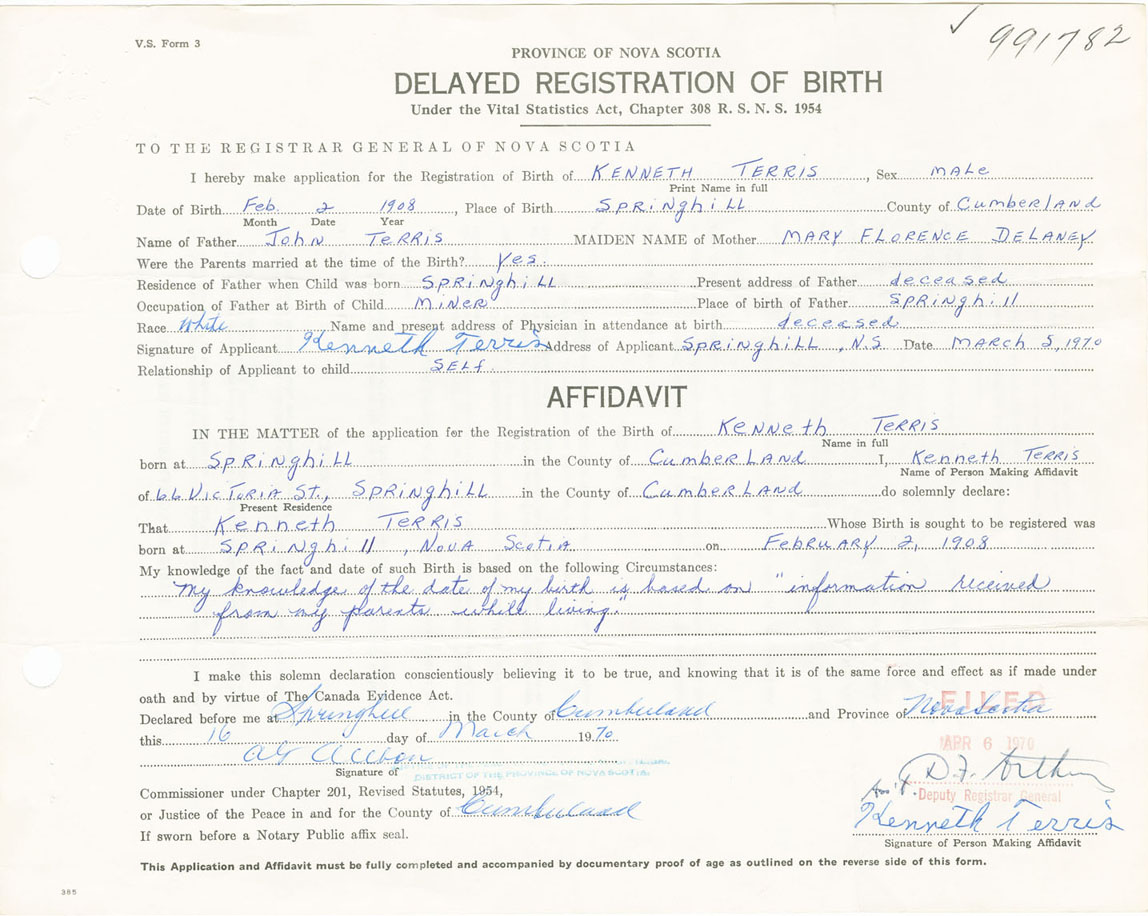 V.S. Form 3
991782
PROVINCE OF NOVA SCOTIA
DELAYED REGISTRATION OF BIRTH
Under the Vital Statistics Act, Chapter 308 R. S. N. S. 1954
TO THE REGISTRAR GENERAL OF NOVA SCOTIA
I hereby make application for the Registration of Birth of KENNETH TERRIS, Sex MALe
Print Name in full
Date of Birth Feb. 2 1908, Place of Birth SPRINghiLL County of CumberLAND
Month Date Year
Name of Father John TERRIS MAIDEN NAME of Mother MARY FLORENCE DELANEY
Were the Parents married at the time of the Birth? yes.
Residence of Father when Child was born SPRINghiLL Present address of Father deceased
Occupation of Father at Birth of Child MiNeR Place of birth of Father SPRINghill
Race White Name and present address of Physician in attendance at birth deceased
Signature of Applicant Kenneth Terris Address of Applicant SPRINghiLL, N.S. Date MARCh 5, 1970
Relationship of Applicant to child SELf
AFFIDAVIT
IN THE MATTER of the application for the Registration of the Birth of KeNNeth TERRIS
Name in full
born at SPRINghiLL in the County of CumberLAND I, Kenneth TERRIS
Name of Person Making Affidavit
of 66 VICTORIA ST., SPRINGhiLL in the County of CumberLAND do solemnly declare:
Present Residence
That Kenneth TERRIS Whose Birth is sought to be registered was
born at SPRINghill, NOVA SCOTIA on FebRUARY 2, 1908
My knowledge of the fact and date of such Birth is based on the following Circumstances:
My knowledge of the date of my birth is based on "information received
from my parents while living."
I make this solemn declaration conscientiously believing it to be true, and knowing that it is of the same force and effect as if made under
oath and by virtue of The Canada Evidence Act.
FILED
Declared before me at Springhill in the County of Cumberland and Province of Nova Scotia
this 16 day of March 1970
APR 6 1970
Signature of
DISTRICT OF THE PROVINCE OF NOVA SCOTIA
Commissioner under Chapter 201, Revised Statutes, 1954,
Deputy Registrar General
or Justice of the Peace in and for the County of Cumberland
Kenneth Terris
If sworn before a Notary Public affix seal.
Signature of Person Making Affidavit
This Application and Affidavit must be fully completed and accompanied by documentary proof of age as outlined on the reverse side of this form.
385